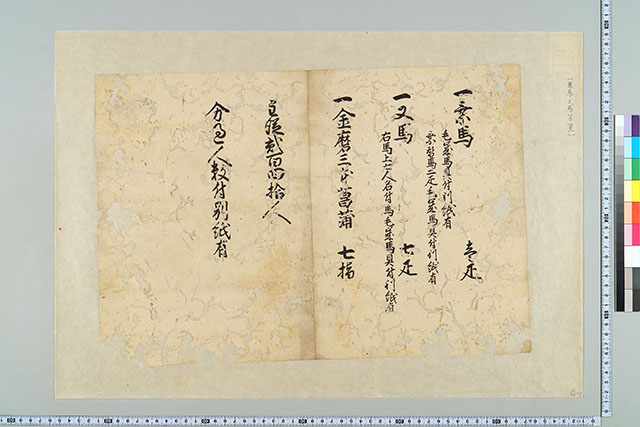 一乗馬 壱疋
毛色馬具付別紙有
乗替馬二疋毛色馬具付別紙有
一又馬 七疋
右馬上七人名付馬毛色馬具付別紙有
一金磨三本菖蒲 七指
主従弐百四拾人
分色人数付別紙有